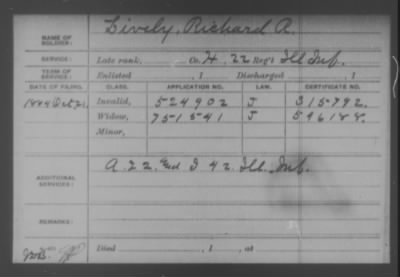 NAME OF SOLDIER: Lively, Richard A.
SERVICE: Late rank, Co. H, 22 Reg't Ill. Inf.
TERM OF SERVICE: Enlisted , 1 Discharged , 1
DATE OF FILING. CLASS. APPLICATION NO. LAW. CERTIFICATE NO.
1884 Oct. 21. Invalid, 524902 J 315792.
Widow, 751541 J 596188.
Minor,
ADDITIONAL SERVICES: A. 22 and I 42 Ill. Inf.
REMARKS:
Died , 1 , at